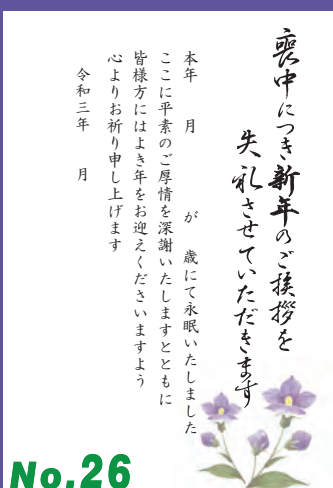 喪中につき新年のご挨拶を
失礼させていただきます
本年　月　　　が　歳にて永眠いたしました
ここに平素のご厚情を深謝いたしますとともに
皆様方にはよき年をお迎えくださいますよう
心よりお祈り申し上げます
令和三年　月
No.26